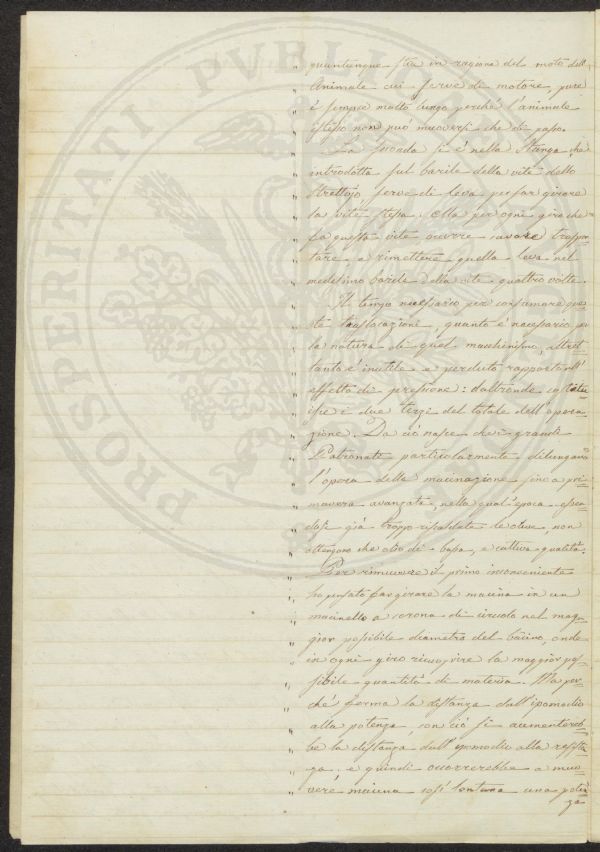 PROSPERITATI PVBLICAE
quantunque stia in ragione del moto dell'
Animale cui serve di motore, pure
è sempre molto lungo perchè l'animale
istesso non può muoversi che di passo.
La seconda si è nella Stanga che
introdotta sul barile della vite dello
Strettojo serve di leva per far girare
la vite stessa. Ella per ogni giro che
fa questa vite occorre cavare traspor=
tare, e rimettere quella leva nel
medesimo barile della vite quattro volte.
Il tempo necessario per consumare que=
ste traslocazioni, quanto è necessario per
la natura di quel macchinismo, altret=
tanto è inutile e perduto rapporto all'
effetto di pressione: d'altronde costitui=
sce i due terzi del totale dell'opera=
zione. Da ciò nasce che i grandi
Patronati particolarmente dilungano
l'opera della macinazione sino a pri=
mavera avanzata, nella qual'epoca essen=
dosi già troppo riscaldate le olive, non
ottengono che olio di bassa, e cattiva qualità.
Per rimuovere il primo inconveniente
ha pensato far girare la macina in un
macinello a corona di circolo nel mag=
gior possibile diametro del bacino, onde
in ogni giro ricuoprire la maggior pos=
sibile quantità di materia. Ma per=
chè ferma la distanza dall'ipomoclio
alla potenza, con ciò si aumentereb=
be la distanza dall'ipomoclio alla resisten=
za, e quindi occorrerebbe a muo=
vere macina così lontana una poten=
za